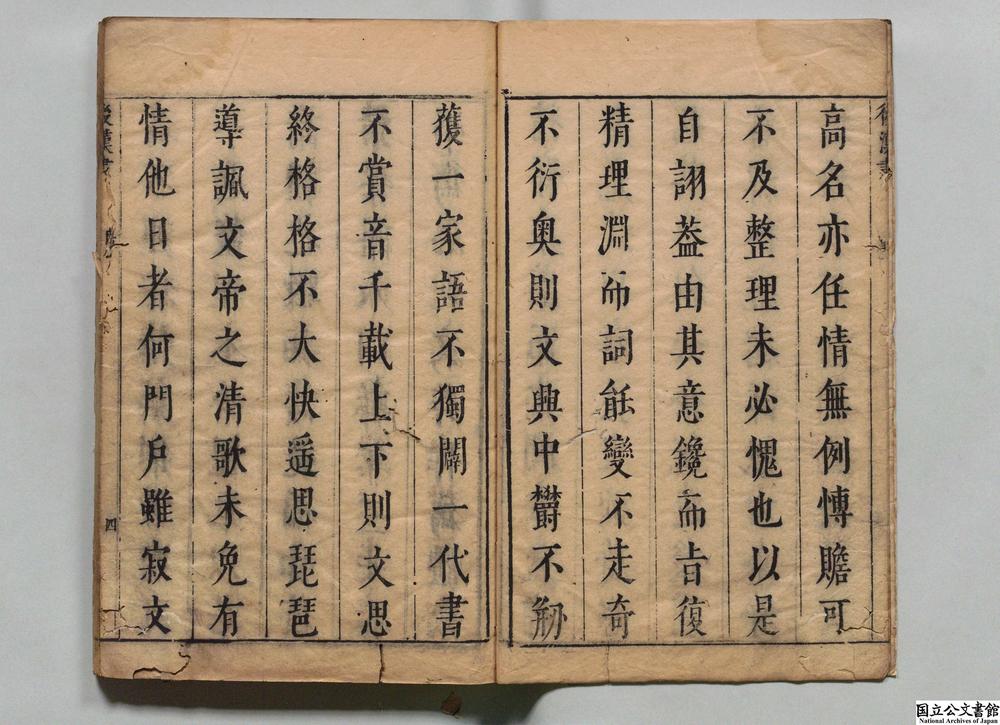 高名亦任情無例愽贍可
不及整理未必愧也以是
自詡葢由其意鑱而㫖復
精理淵而詞能變不走奇
不衍奥則文興中欝不
獲一家語不獨闢一代書
不賞音千載上下則文思
終格格不大快遥思琵琶
導諷文帝之清歌未免有
情他日者何門戶雖寂文
後漢書
四
国立公文書館
National Archives of Japan